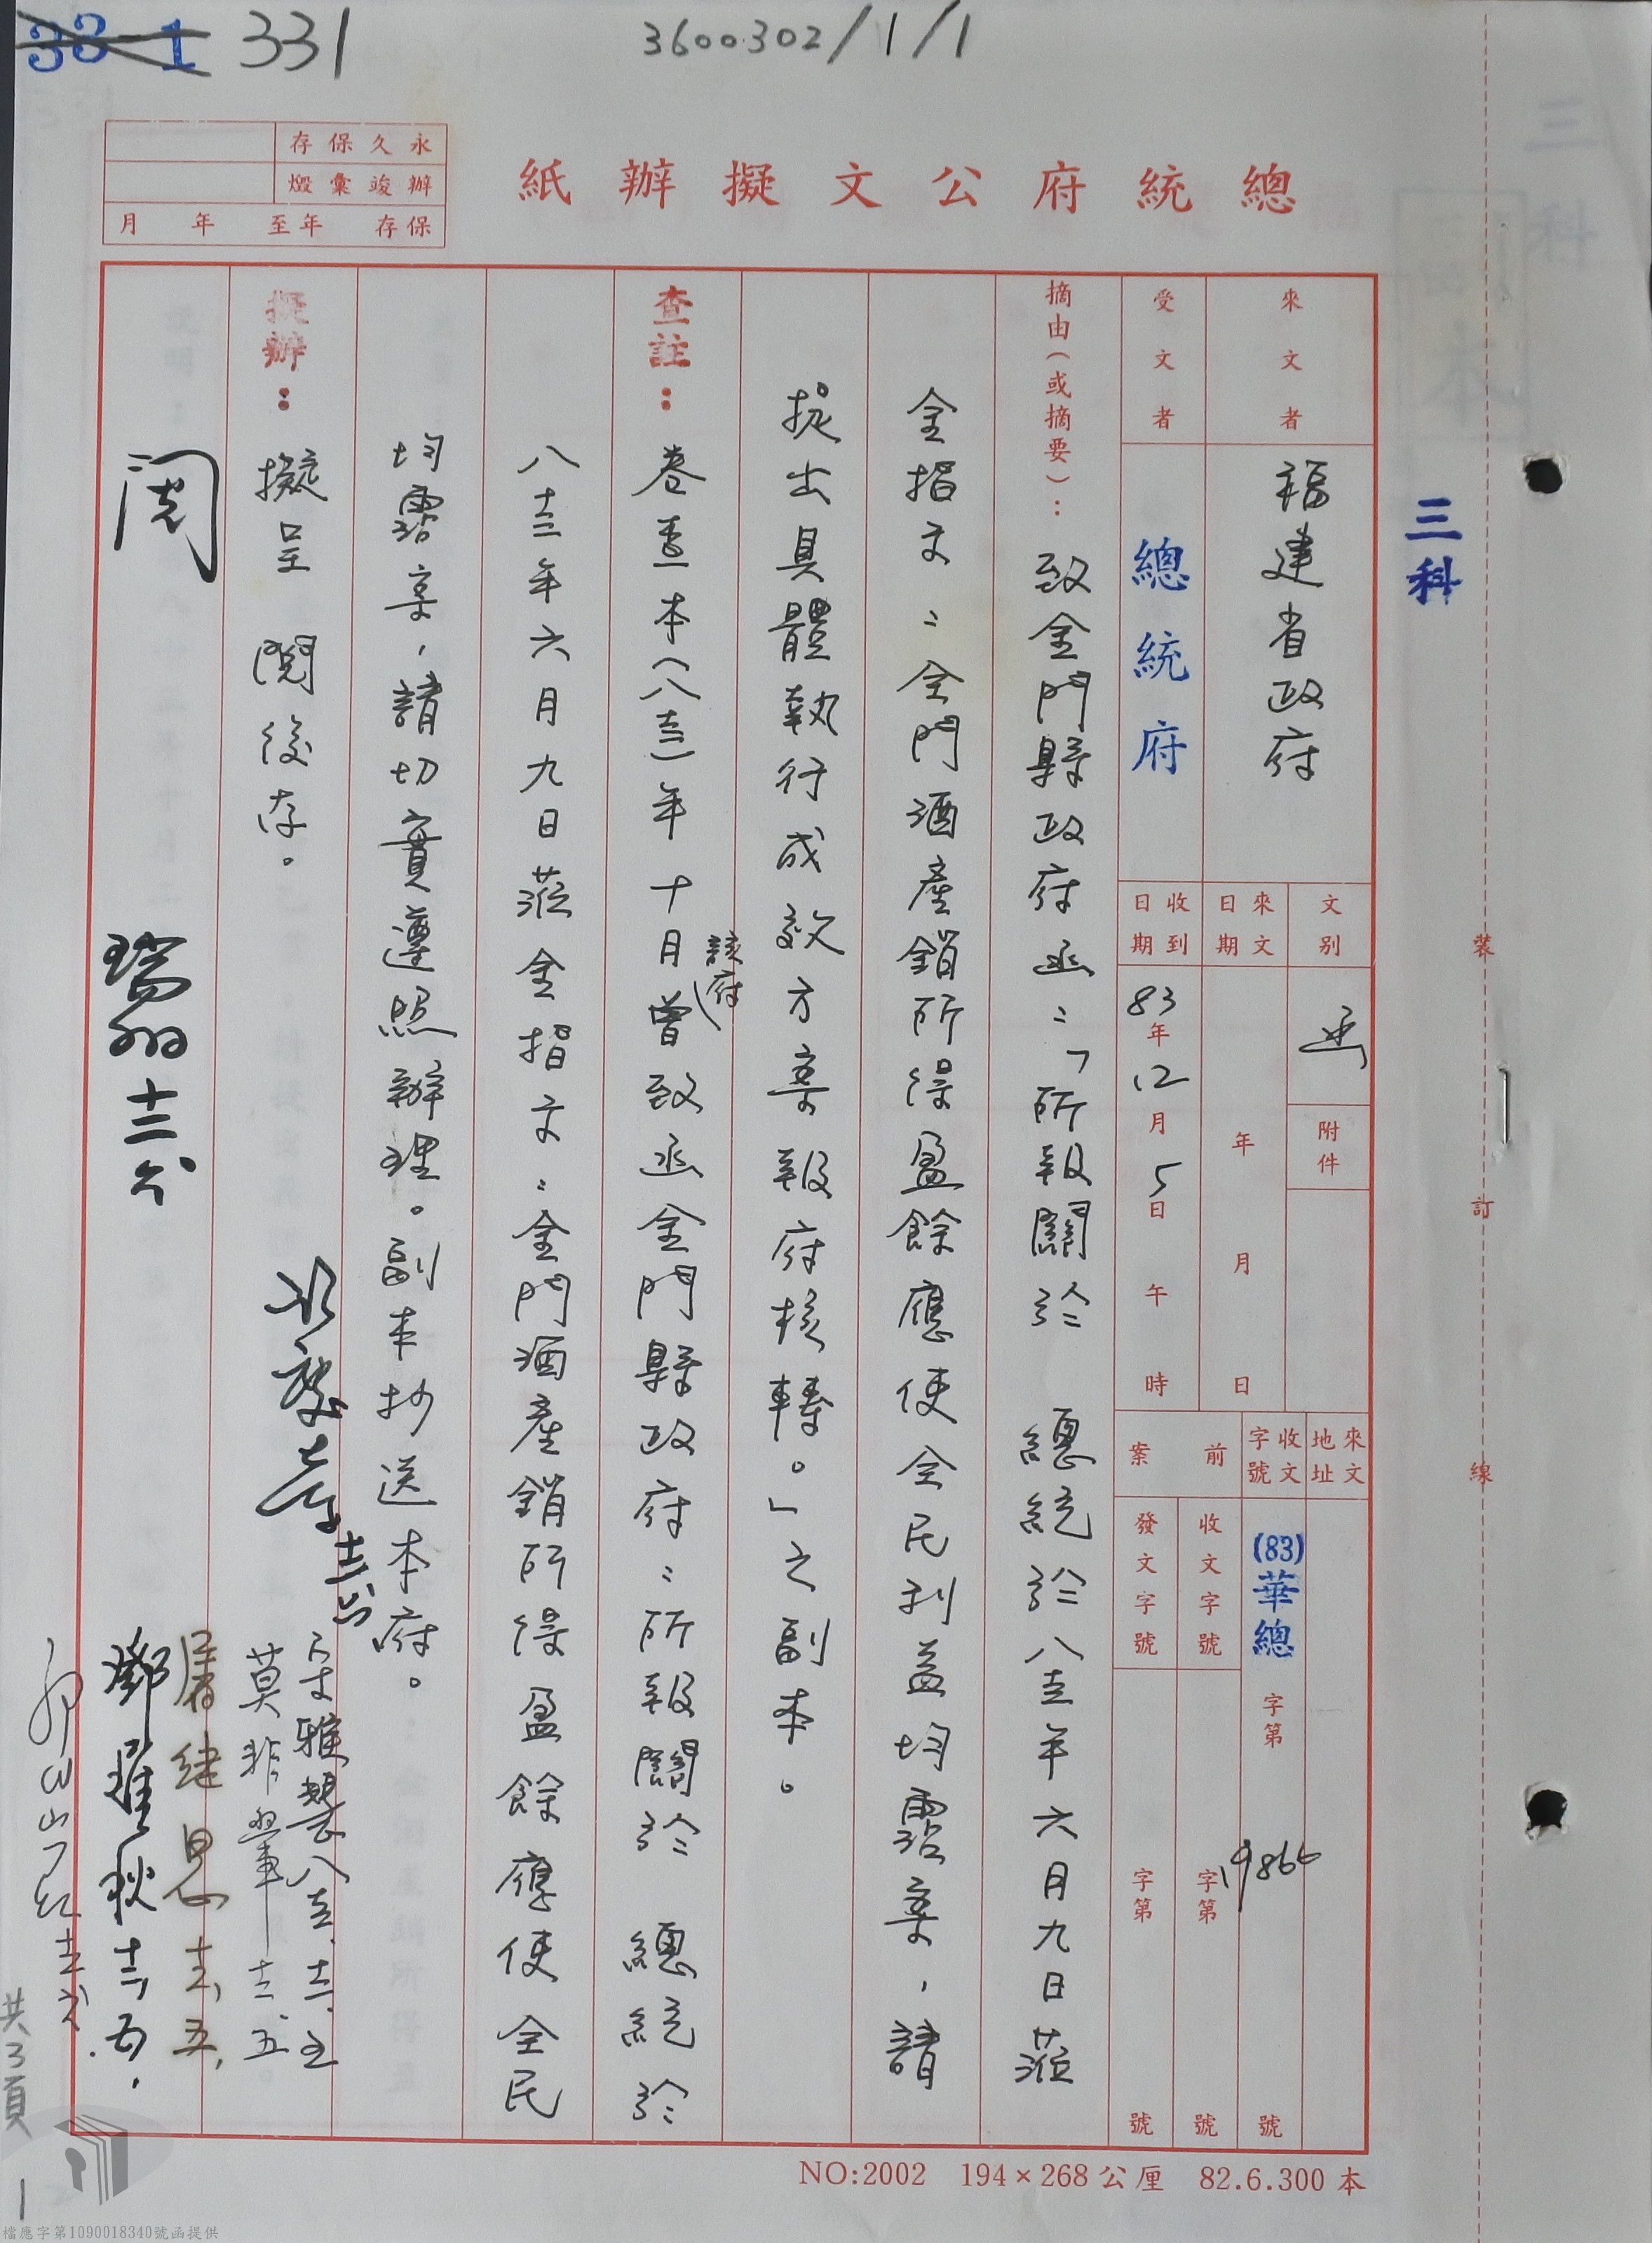 331
3600302/1/1
總統府公文擬辦紙
永久保存
辦竣彙燬
保存 年至 年 月
三科
來文者
福建省政府
文別
函
附件
來文日期
年 月 日
來文地址
收文字號
(83)華總 字第 19866 號
受文者
總統府
收到日期
83年12月5日 午 時
前案
收文字號
字第 號
發文字號
字第 號
摘由(或摘要):
致金門縣政府函:「所報關於 總統於八十三年六月九日蒞
金指示:金門酒產銷所得盈餘應使全民利益均霑案,請
提出具體執行成效方案報府核轉。」之副本。
查註:
卷查本(八十三)年十月該府曾致函金門縣政府:所報關於 總統於
八十三年六月九日蒞金指示:金門酒產銷所得盈餘應使全民
均霑案,請切實遵照辦理。副本抄送本府。
擬辦:
擬呈 閱後存。
閱
裝
訂
線
共3頁
1
NO:2002 194×268公厘 82.6.300本
檔應字第1090018340號函提供